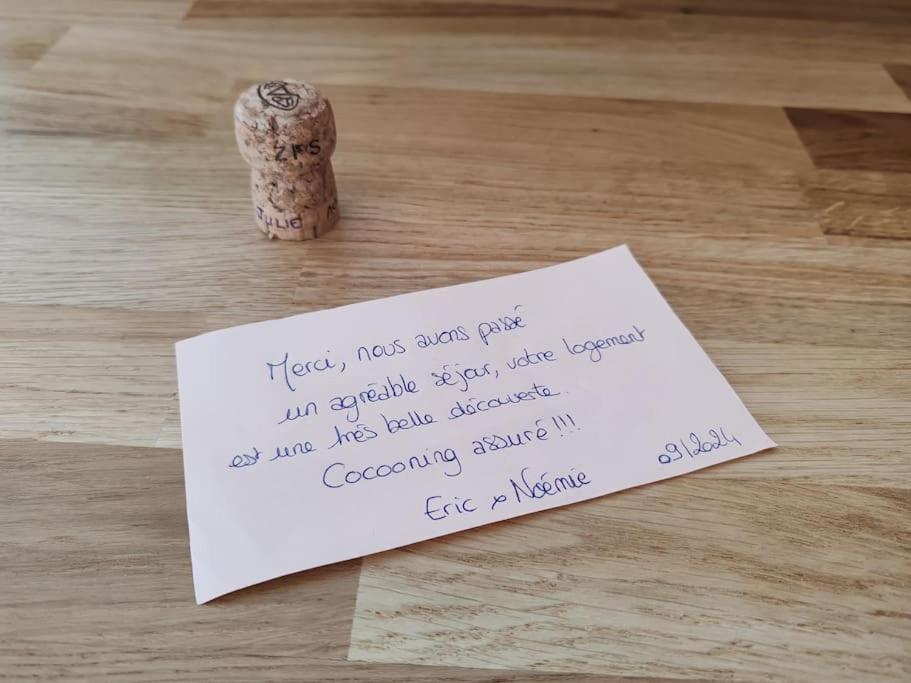 ZKS
JULIE
Merci, nous avons passé
un agréable séjour, votre logement
est une très belle découverte.
Cocooning assuré!!!
Eric & Noémie
09/2024